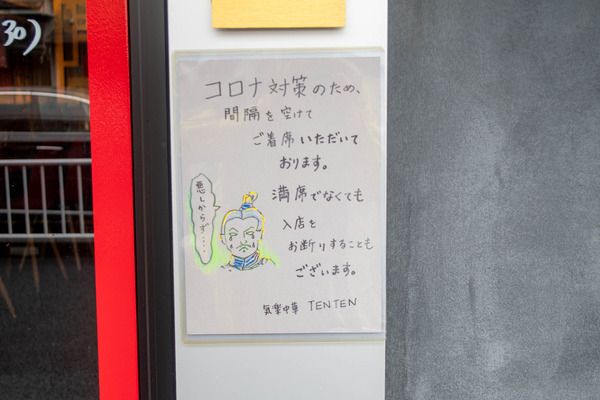 30)
コロナ対策のため、
間隔を空けて
ご着席いただいて
おります。
満席でなくても
入店を
お断りすることも
ございます。
悪しからず.....
気楽中華 TENTEN